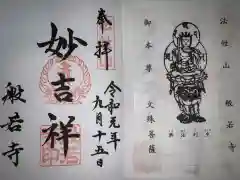 法性山 般若寺
御本尊 文殊菩薩
奉拝
令和元年九月十五日
妙吉祥
般若寺